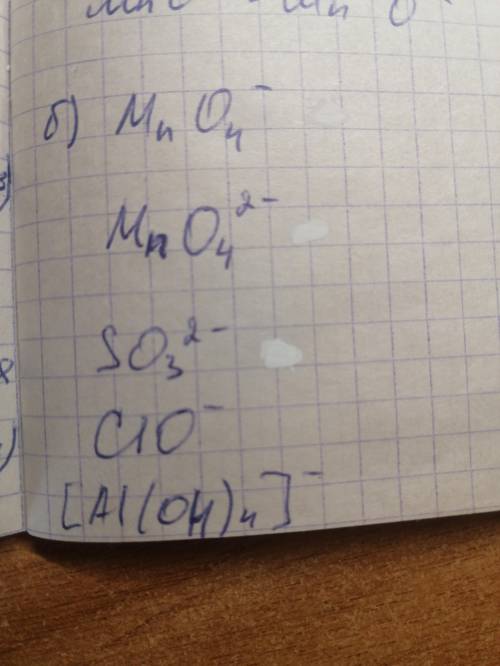 б) MnO₄⁻
MnO₄²⁻
SO₃²⁻
ClO⁻
[Al(OH)₄]⁻